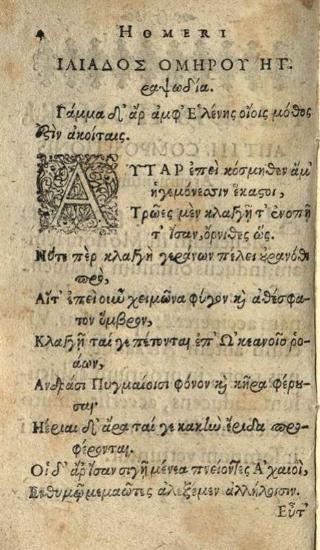 ΗΘΜΕRI
ΙΛΙΑΔΟΣ ΟΜΗΡΟΥ ΗΓ.
ραψωδία.
Γάμμα δ' ἄρ ἀμφ' Ἑλένης οἴοις μόθος
ὅξιν ἀκοίταις.
ΑΥΤΑΡ ἐπεὶ κόσμηθεν ἅμ'
ἡγεμόνεσσιν ἕκαστοι,
Τρῶες μὲν κλαγγῇ τ' ἐνοπῇ
τ' ἴσαν, ὄρνιθες ὥς.
Νὖτε πὲρ κλαγγὴ γεράνων πέλει οὐρανόθι
πρὸ,
Αἵτ' ἐπεὶ οὖν χειμῶνα φύγον καὶ ἀθέσφα-
τον ὄμβρον,
Κλαγγῇ ταί γε πέτονται ἐπ' Ὠκεανοῖο ῥο-
άων,
Ἀνδράσι Πυγμαίοισι φόνον καὶ κῆρα φέρου-
σαι·
Ἠέριαι δ' ἄρα ταί γε κακὴν ἔριδα προ-
φέρονται.
Οἱ δ' ἄρ' ἴσαν σιγῇ μένεα πνείοντες Ἀχαιοί,
Ἐν θυμῷ μεμαῶτες ἀλεξέμεν ἀλλήλοισιν.
Εὖτ'